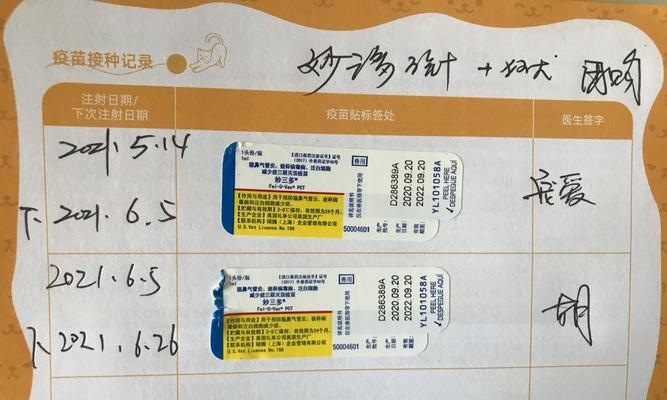 疫苗接种记录
妙 三针 +
注射日期/
下次注射日期
疫苗贴标签处
医生签字
2021.5.14
下 2021.6.5
1头份/瓶
1ml
【进口兽药注册证书】证号
(2017)外兽药证字40号
兽用
猫鼻气管炎、嵌杯病毒病、泛白细胞
减少症三联灭活疫苗
妙三多®
Fel-O-Vax® PCT
【作用与用途】用于预防猫鼻气管炎、嵌杯病
毒病和泛白细胞减少症。
【贮藏与有效期】2-8℃保存,有效期为24个月。
【生产企业】美国礼来公司美国生产厂
【联系机构】硕腾(上海)企业管理有限公司
U.S.Vet License No.196
详见说明书
仅在兽医指导下使用
50004601
生产批号: D286389A
生产日期 2020.09.20
有效期至 2022.09.20
YL101058A
PEEL HERE
DESPEGUE AQUÍ
宠爱
2021.6.5
下 2021.6.26
1头份/瓶
【进口兽药注册证书】证号
(2017)外兽药证字40号
兽用
猫鼻气管炎、嵌杯病毒病、泛白细胞
减少症三联灭活疫苗
妙三多®
Fel-O-Vax® PCT
【作用与用途】用于预防猫鼻气管炎、嵌杯病
毒病和泛白细胞减少症。
【贮藏与有效期】2-8℃保存,有效期为24个月。
【生产企业】美国礼来公司美国生产厂
【联系机构】硕腾(上海)企业管理有限公司
U.S.Vet License No.196
详见说明书
仅在兽医指导下使用
50004601
生产批号: D286389A
生产日期 2020.09.20
有效期至 2022.09.20
YL101058A
PEEL HERE
DESPEGUE AQUÍ
胡